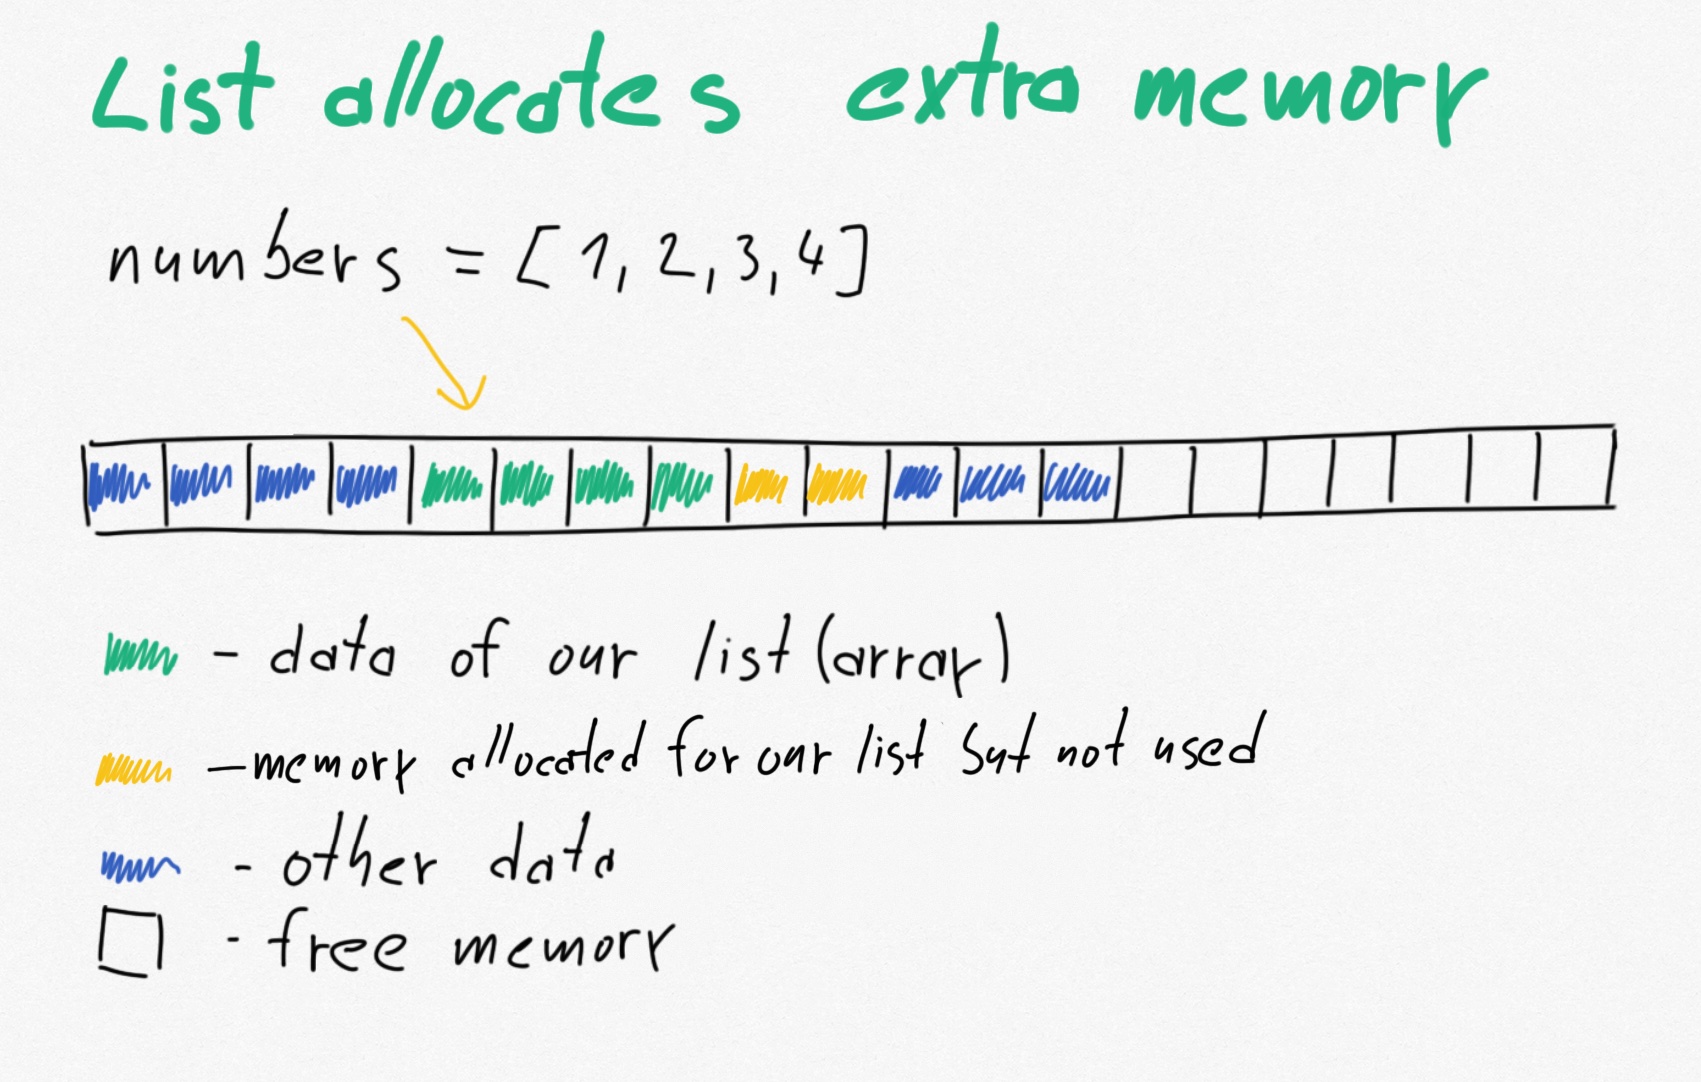 List allocates extra memory
numbers = [1, 2, 3, 4]
- data of our list (array)
- memory allocated for our list but not used
- other data
- free memory